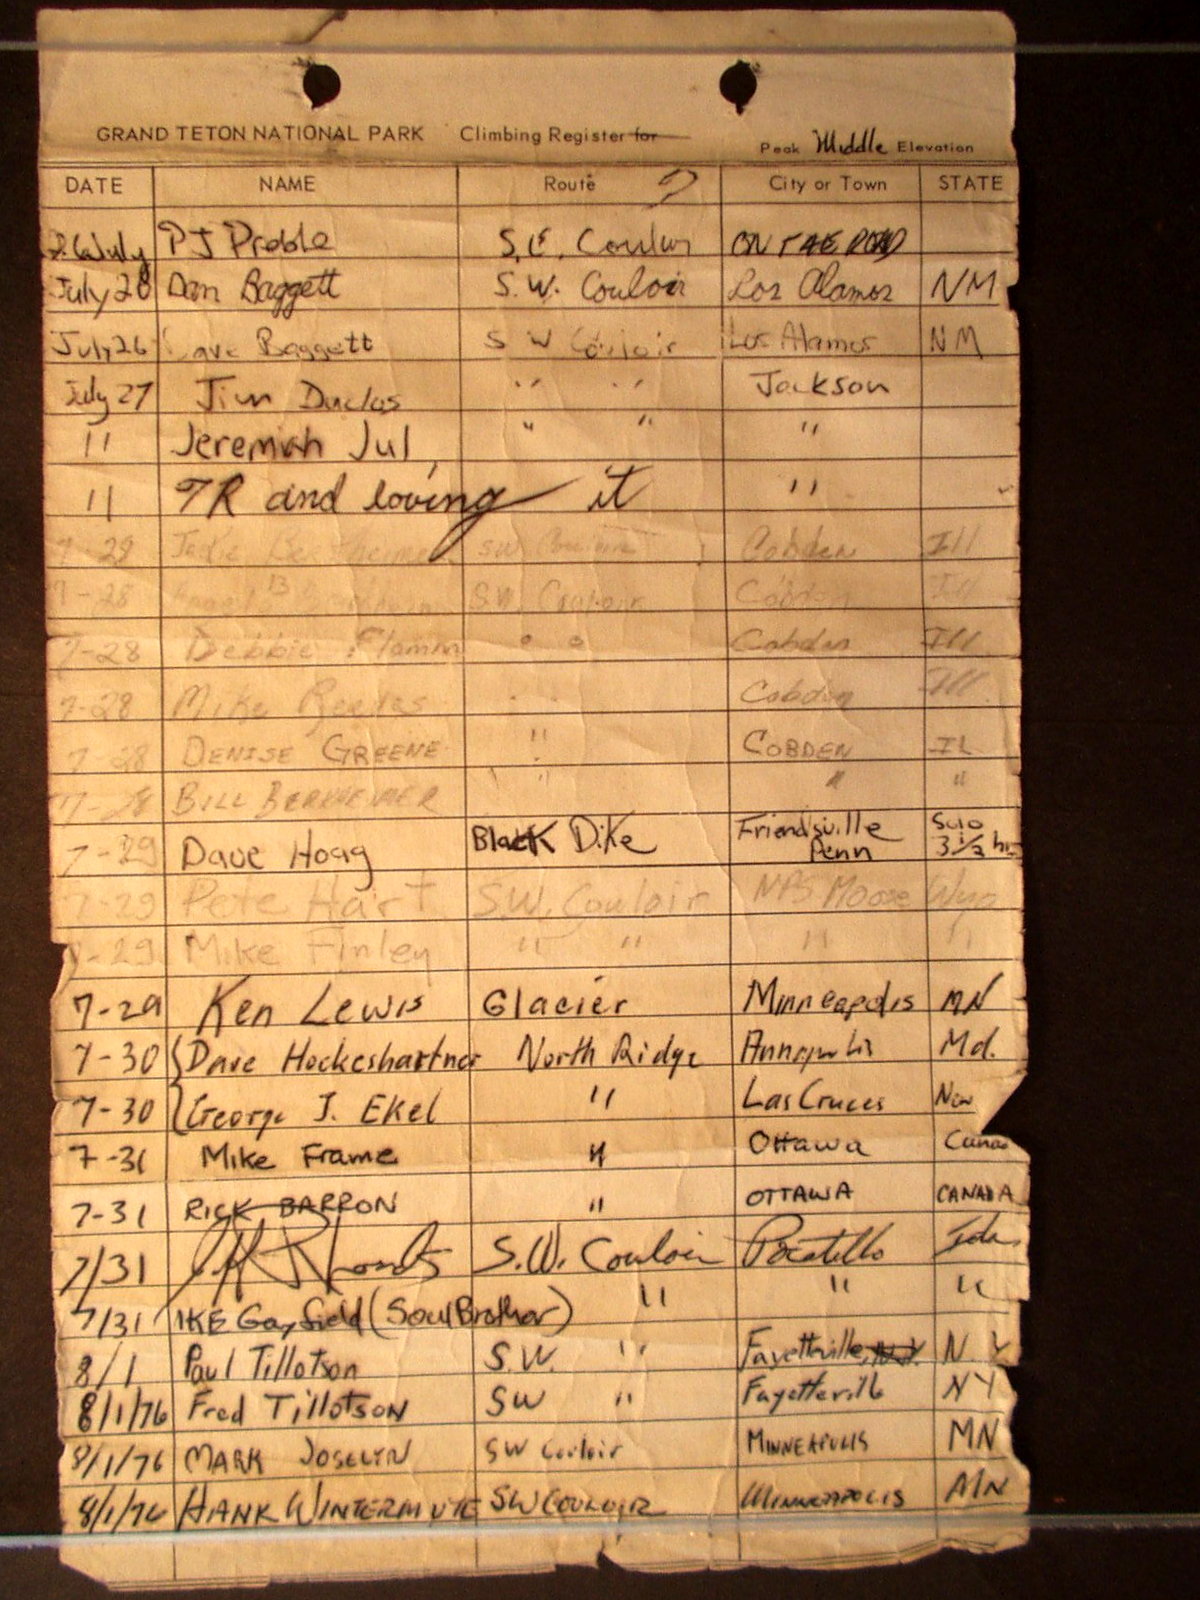 GRAND TETON NATIONAL PARK Climbing Register for Peak Middle Elevation
DATE NAME Route ? City or Town STATE
26 July PJ Preble S.E. Couloir ON THE ROAD
July 26 Dan Baggett S.W. Couloir Los Alamos NM
July 26 Dave Baggett S W Couloir Los Alamos NM
July 27 Jim Duclos " " Jackson
11 Jeremiah Jul " " "
11 TR and loving it "
7-29 SW Couloir Cobden Ill
7-28 SW. Couloir Cobden Ill
7-28 Debbie Flamm " " Cobden Ill
7-28 Mike Reeves " " Cobden Ill
7-28 DENISE GREENE " COBDEN IL
7-28 BILL " " "
7-29 Dave Hoag Black Dike Friendsville Penn Solo 3 1/2 hr
7-29 Pete Hart S.W. Couloir NPS Moose Wyo
7-29 Mike Finley " " " "
7-29 Ken Lewis Glacier Minneapolis MN
7-30 Dave Hockeshartner North Ridge Annapolis Md.
7-30 George J. Ekel " Las Cruces New
7-31 Mike Frame " Ottawa Canad
7-31 RICK BARRON " OTTAWA CANADA
7/31 S.W. Couloir Pocatello Ida
7/31 IKE Gayfield (Soul Brother) " " "
8/1 Paul Tillotson S.W. " Fayetteville, N.Y. N Y
8/1/76 Fred Tillotson SW " Fayetteville NY
8/1/76 MARK JOSELYN SW Couloir MINNEAPOLIS MN
8/1/76 HANK WINTERMUTE SW COULOIR MINNEAPOLIS MN